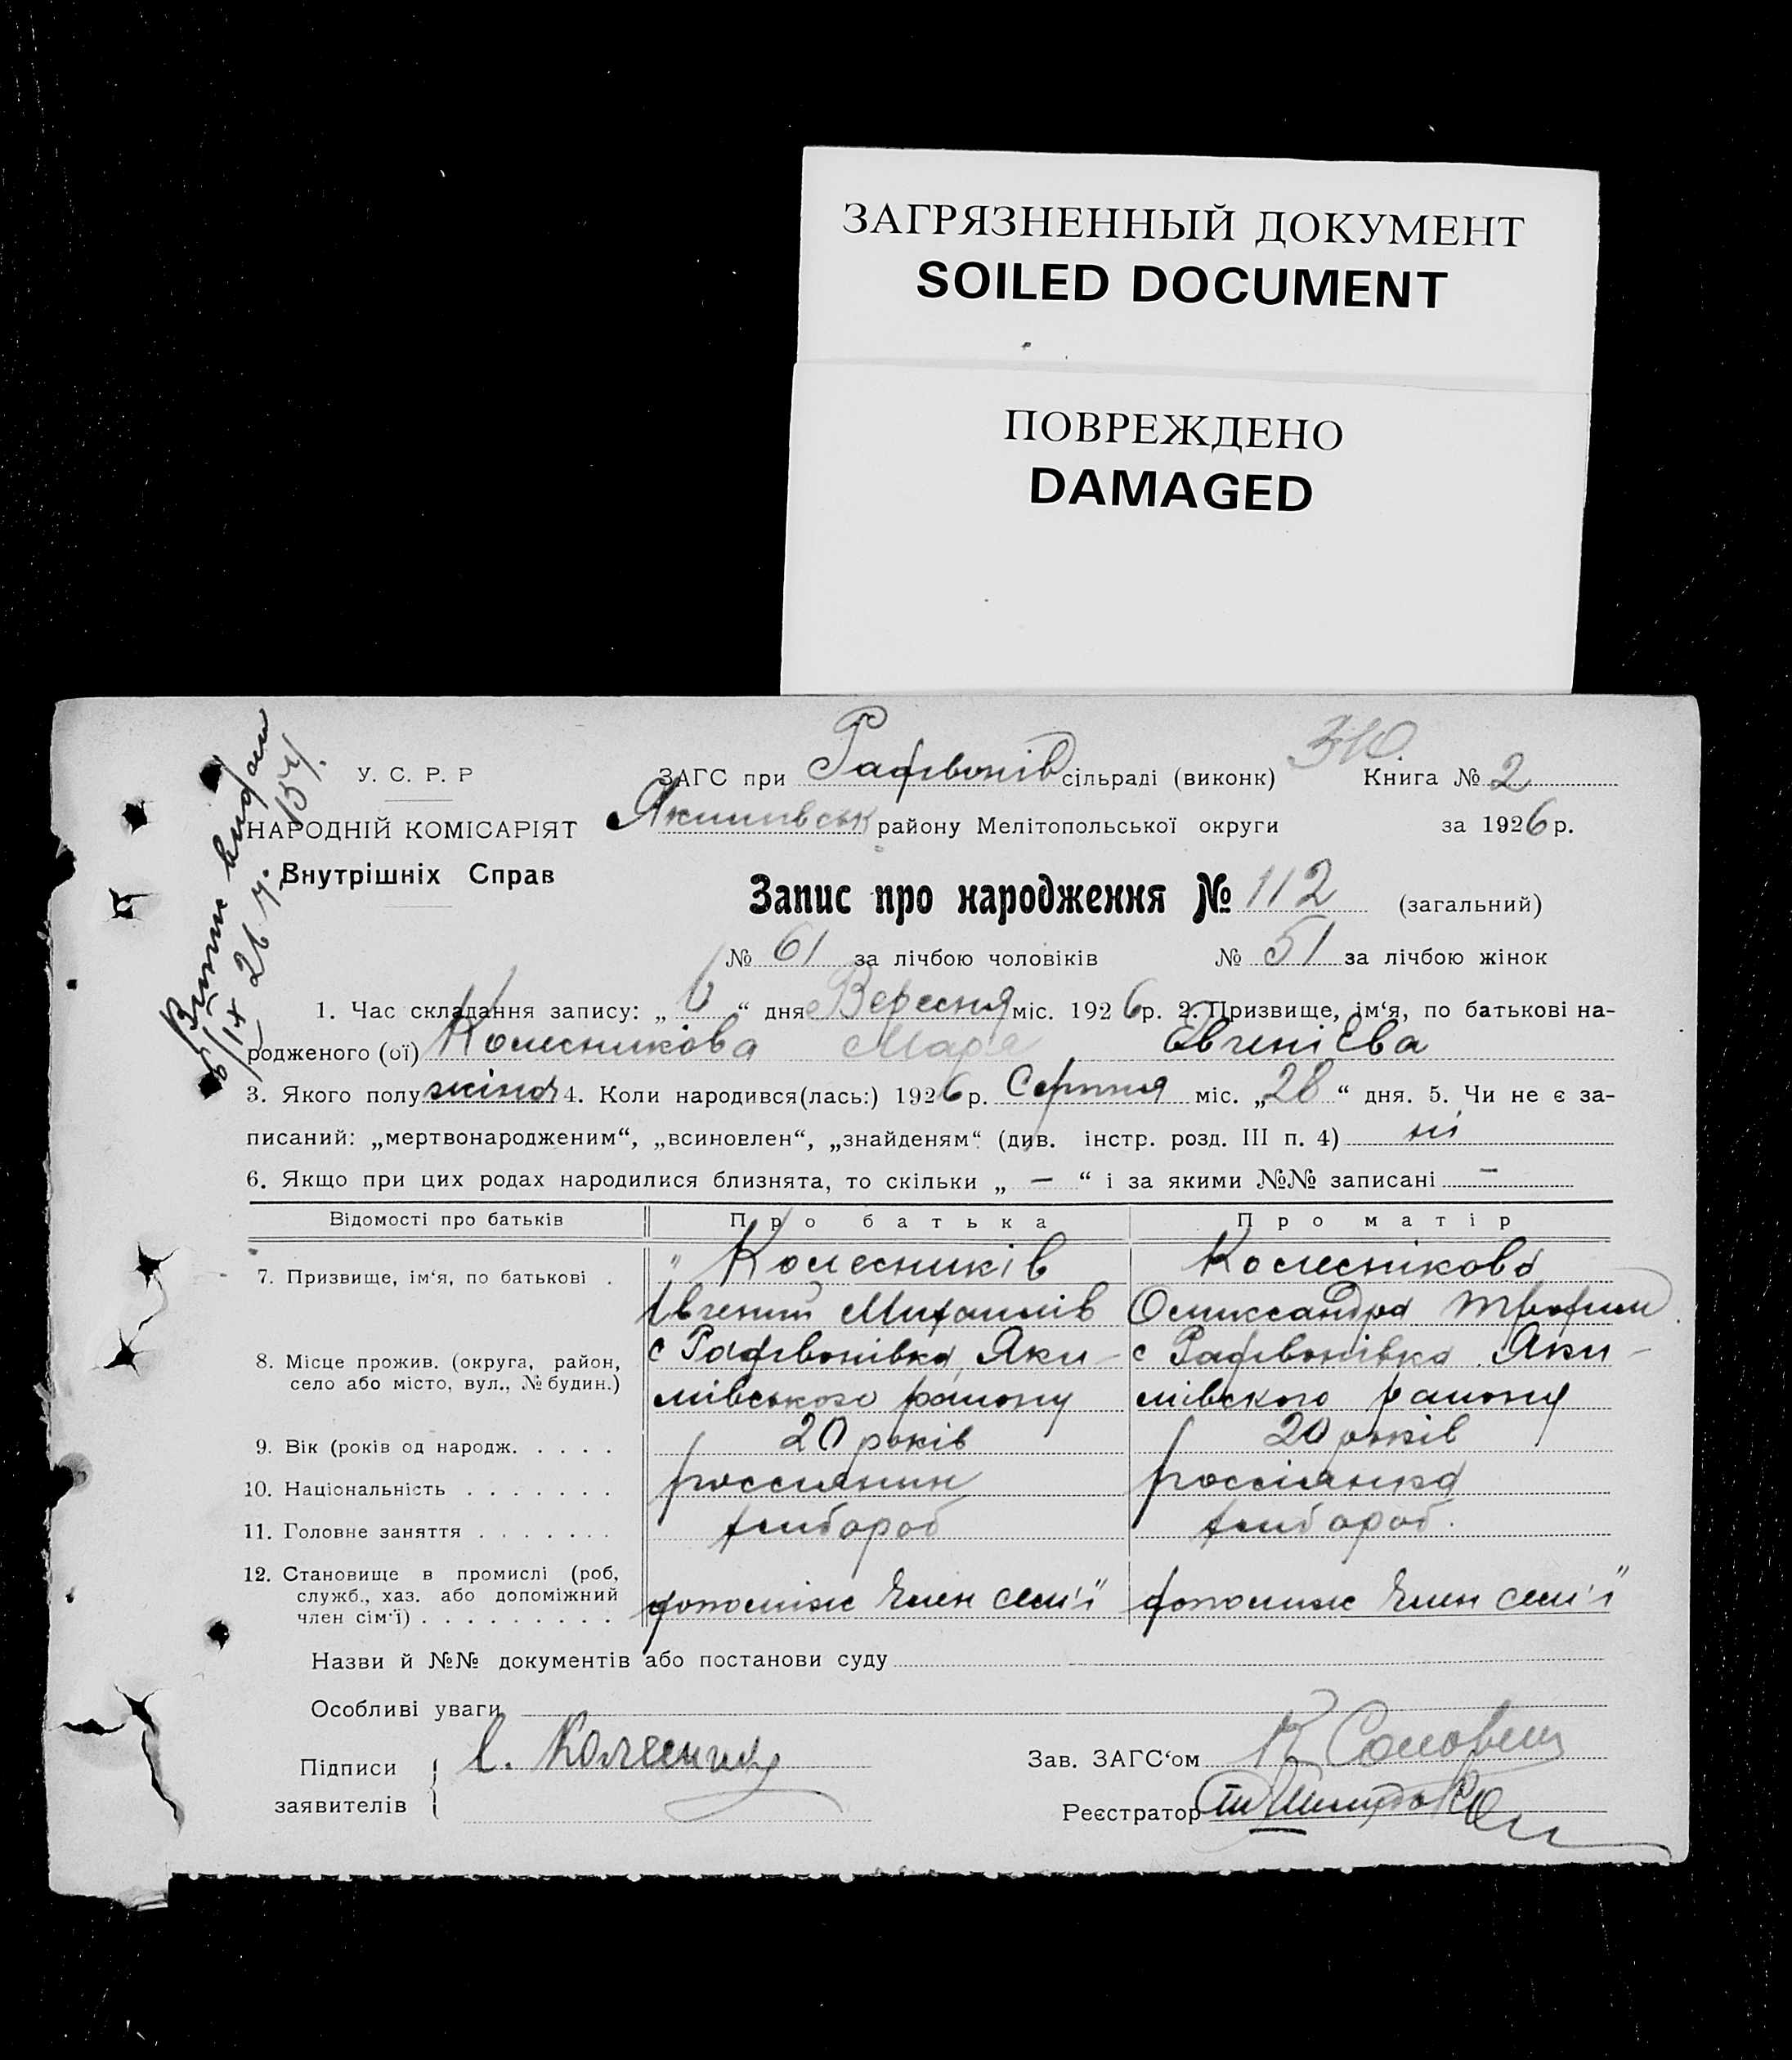 ЗАГРЯЗНЕННЫЙ ДОКУМЕНТ
SOILED DOCUMENT
ПОВРЕЖДЕНО
DAMAGED
У. С. Р. Р
НАРОДНІЙ КОМІСАРІЯТ
Внутрішніх Справ
ЗАГС при сільраді (виконк) Книга № 2
району Мелітопольської округи за 1926 р.
Запис про народження № 112 (загальний)
№ 61 за лічбою чоловіків № 51 за лічбою жінок
1. Час складання запису: „ 6 “ дня Вересня міс. 1926 р. 2. Призвище, ім‘я, по батькові на-
родженого (ої) Колесникова Мар'я ЕвгеніЕва
3. Якого полу жіноч 4. Коли народився(лась:) 1926 р. Серпня міс. „28“ дня. 5. Чи не є за-
писаний: „мертвонародженим“, „всиновлен“, „знайденям“ (див. інстр. розд. III п. 4) ні
6. Якщо при цих родах народилися близнята, то скільки „ — “ і за якими №№ записані —
Відомості про батьків Про батька Про матір
7. Призвище, ім‘я, по батькові . Колесників Колеснікова
Олександра Трофим.
8. Місце прожив. (округа, район, село або місто, вул., № будин.) с Яки- с Яки-
мівського району мівского району
9. Вік (років од народж. . . . . 20 років 20 років
10. Національність . . . . . . . россиянин россіянка
11. Головне заняття . . . . . . . хлибороб хлибороб.
12. Становище в промислі (роб, служб., хаз. або допоміжний член сім‘ї) . . . . . . . . . допоміж Член семі'ї допомиж Член семі'ї
Назви й №№ документів або постанови суду
Особливі уваги
Підписи заявителів
Зав. ЗАГС‘ом
Реєстратор